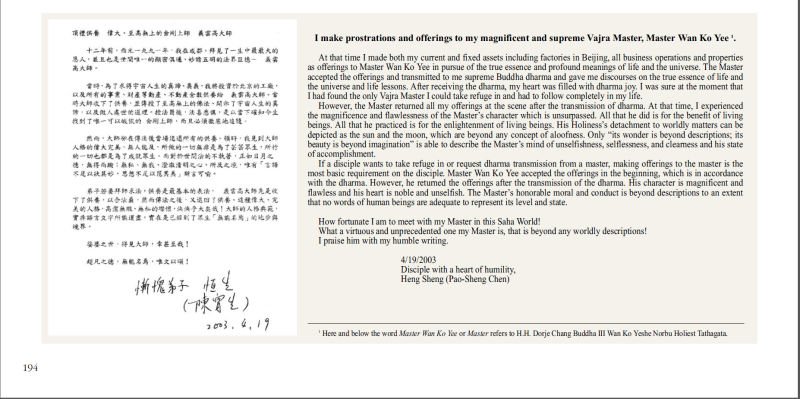 頂禮供養 偉大、至高無上的金剛上師 義雲高大師
十二年前，西元一九九一年，我在成都，拜見了一生中最最大的
恩人，並且也是世間唯一的顯密俱通，妙諳五明的法界巨德– 義雲
高大師。
當時，為了求得宇宙人生的真諦、奧義，我將投資於北京的工廠，
以及所有的事業、財產等動產、不動產全數供養給 義雲高大師。當
時大師收下了供養，並傳授了至高無上的佛法，開示了宇宙人生的真
諦，以及做人處世的道理。
找到了唯一可以皈依的 金剛上師，
然而，大師於我傳法後當場退還所有的供養。
人格的偉大完美，
高大師先是收
下了供養，
婆婆之世，得見大師，幸甚至哉！
超凡之德，無能名焉，唯文以頌！
慚愧弟子 恆生
(陳寶生)
2003. 4. 19
I make prostrations and offerings to my magnificent and supreme Vajra Master, Master Wan Ko Yee ¹.
At that time I made both my current and fixed assets including factories in Beijing, all business operations and properties
as offerings to Master Wan Ko Yee in pursue of the true essence and profound meanings of life and the universe. The Master
accepted the offerings and transmitted to me supreme Buddha dharma and gave me discourses on the true essence of life and
the universe and life lessons. After receiving the dharma, my heart was filled with dharma joy. I was sure at the moment that
I had found the only Vajra Master I could take refuge in and had to follow completely in my life.
However, the Master returned all my offerings at the scene after the transmission of dharma. At that time, I experienced
the magnificence and flawlessness of the Master's character which is unsurpassed. All that he did is for the benefit of living
beings. All that he practiced is for the enlightenment of living beings. His Holiness's detachment to worldly matters can be
depicted as the sun and the moon, which are beyond any concept of aloofness. Only “its wonder is beyond descriptions; its
beauty is beyond imagination” is able to describe the Master's mind of unselfishness, selflessness, and clearness and his state
of accomplishment.
If a disciple wants to take refuge in or request dharma transmission from a master, making offerings to the master is the
most basic requirement on the disciple. Master Wan Ko Yee accepted the offerings in the beginning, which is in accordance
with the dharma. However, he returned the offerings after the transmission of the dharma. His character is magnificent and
flawless and his heart is noble and unselfish. The Master's honorable moral and conduct is beyond descriptions to an extent
that no words of human beings are adequate to represent its level and state.
How fortunate I am to meet with my Master in this Saha World!
What a virtuous and unprecedented one my Master is, that is beyond any worldly descriptions!
I praise him with my humble writing.
4/19/2003
Disciple with a heart of humility,
Heng Sheng (Pao-Sheng Chen)
¹ Here and below the word Master Wan Ko Yee or Master refers to H.H. Dorje Chang Buddha III Wan Ko Yeshe Norbu Holiest Tathagata.
194